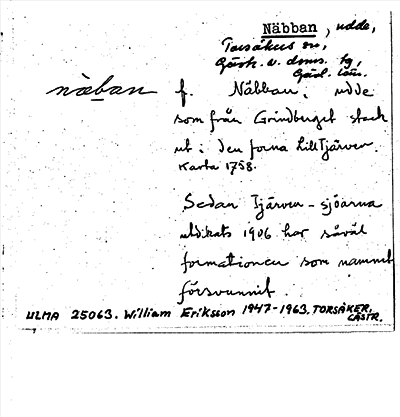 Näbban, udde,
Torsåkers sn,
Gästr. v. doms. hg,
Gävl. län.
näban f. Näbban, udde
som från Grindberget stack
ut i den forna LillTjärven.
Karta 1758.
Sedan Tjärven-sjöarna
utdikats 1906 har såväl
formationen som namnet
försvunnit.
ULMA 25063. William Eriksson 1947-1963. TORSÅKER,
GÄSTR.